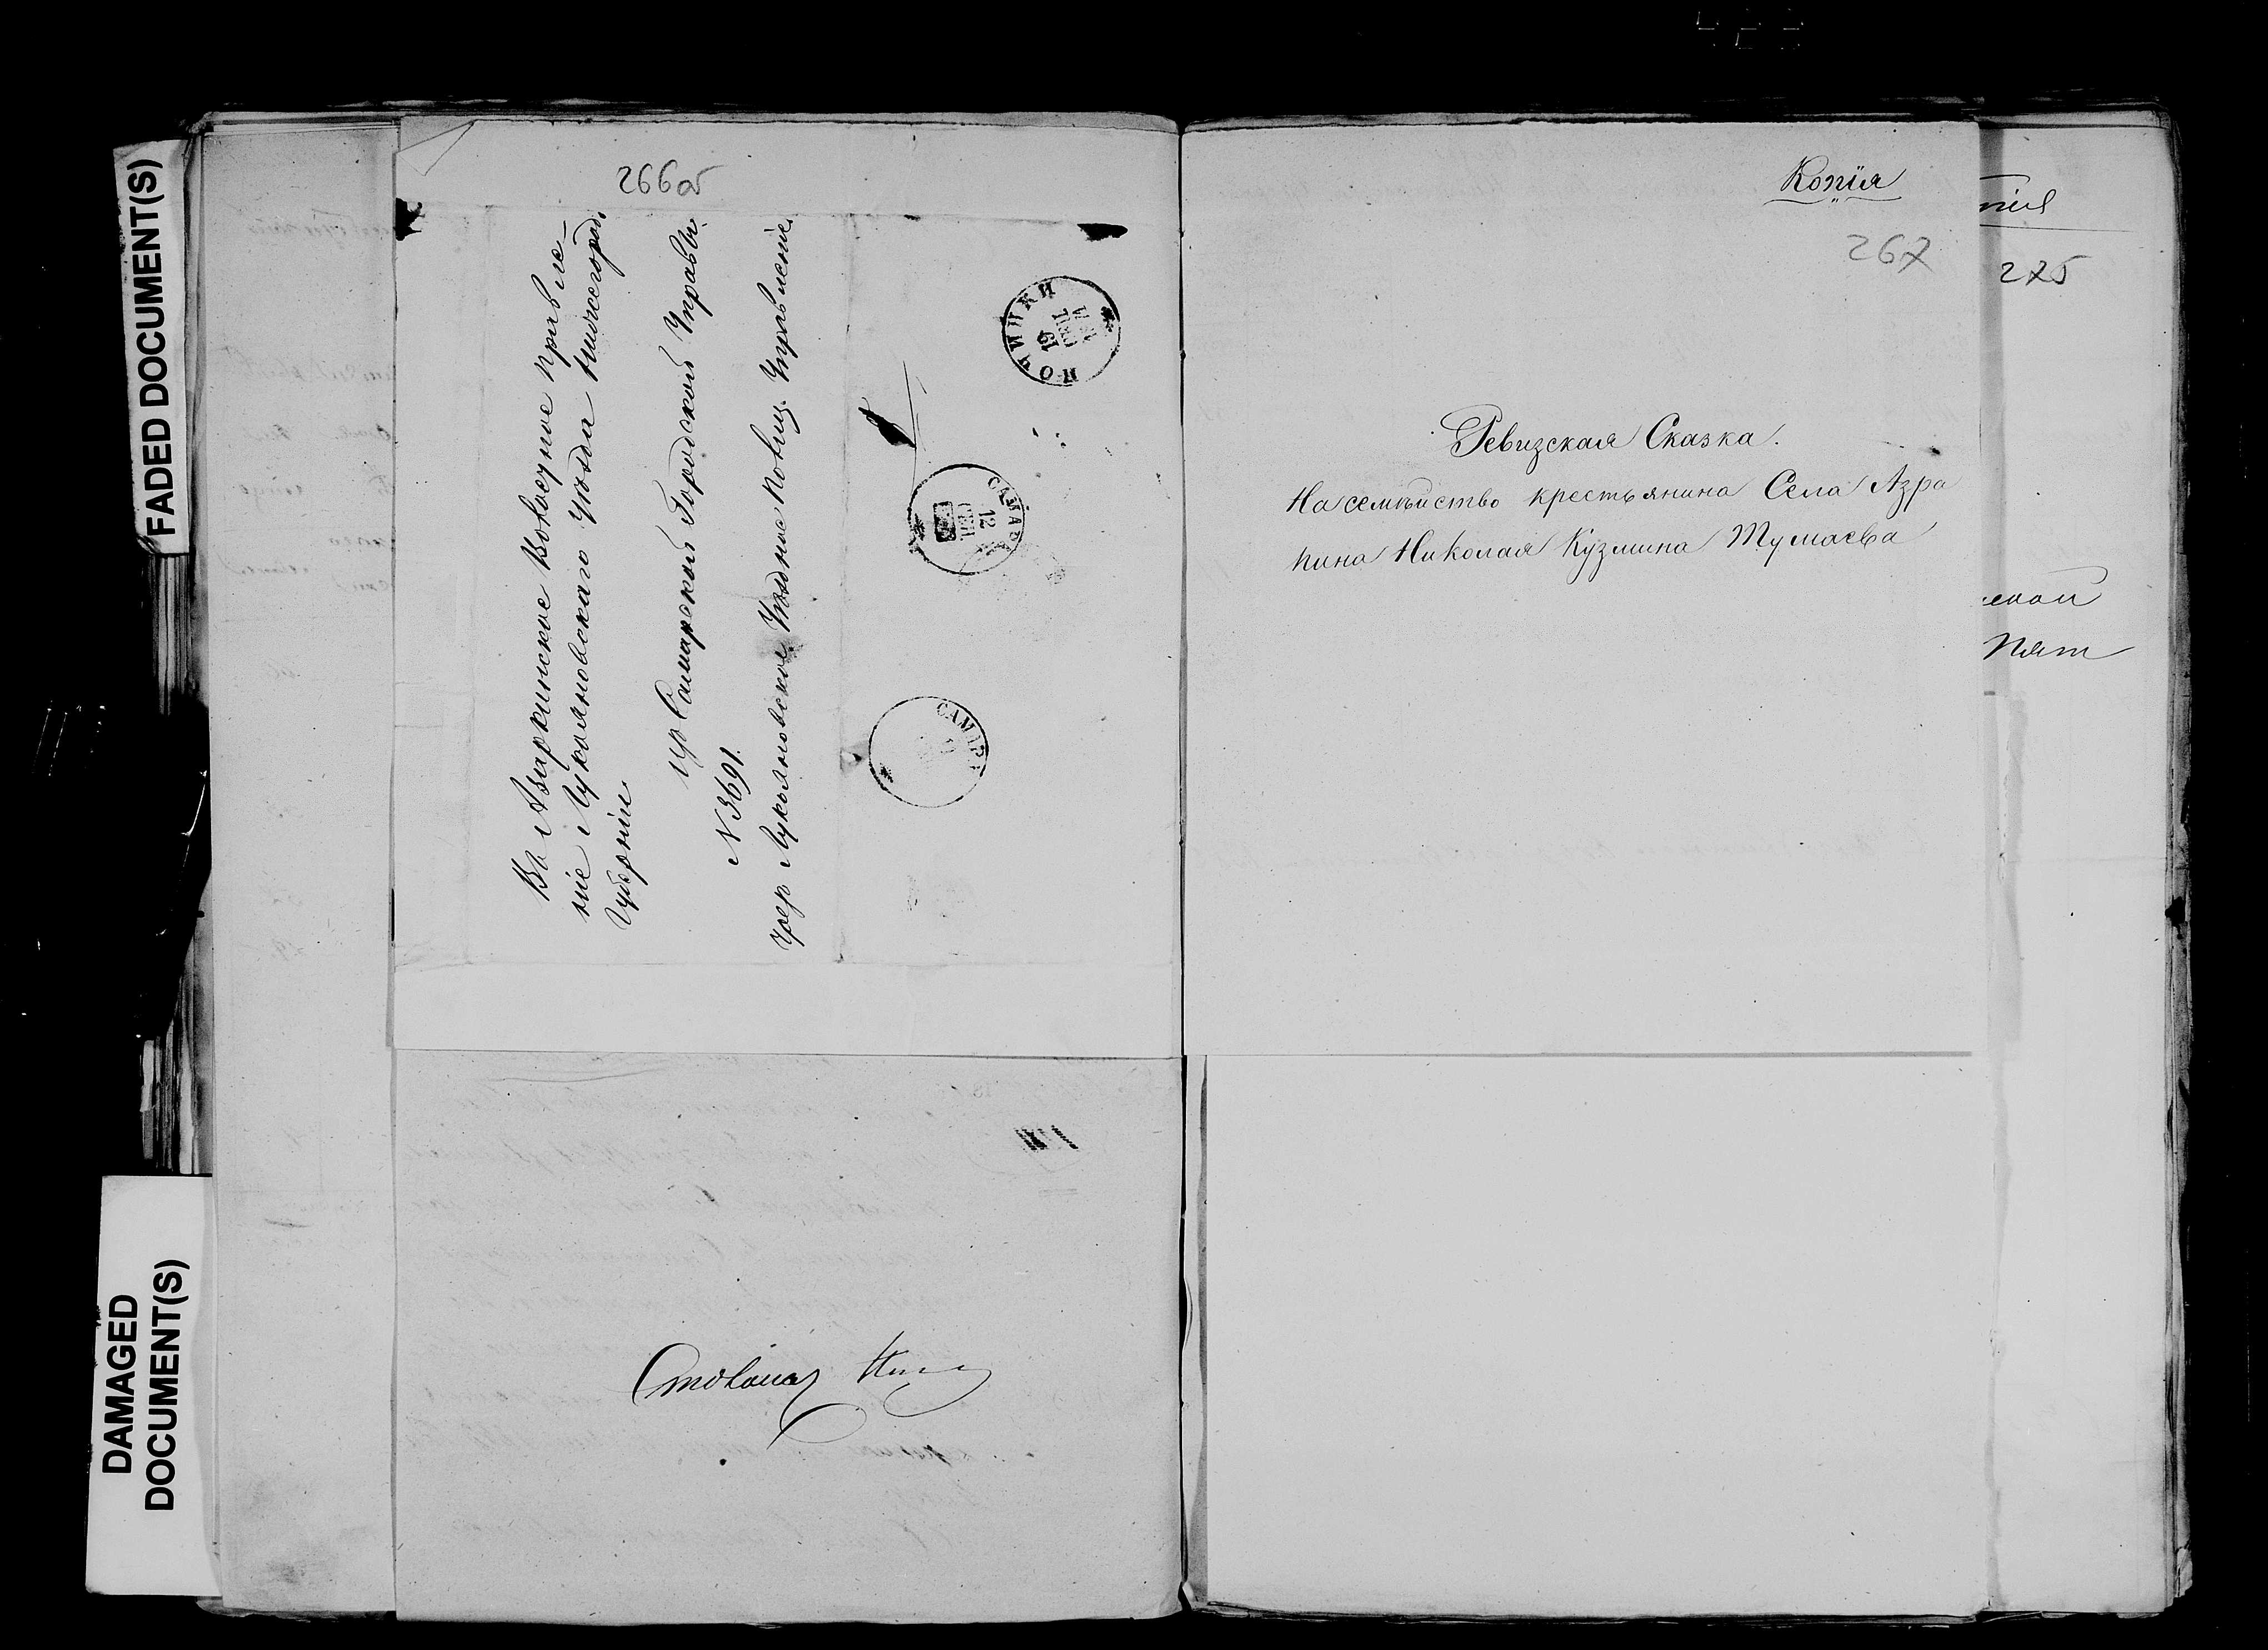 FADED DOCUMENT(S)
DAMAGED
DOCUMENT(S)
266об
Въ Азаркинское Волосное правле-
ніе Лукояновскаго Уѣзда Нижегород.
Губерніи
Самарской Городской Управы
N 3691.
Лукояновское Уѣздное Полиц. Управленіе
ПОЧИНКИ
19
СЕН
САМАРА
12
СЕН
САМАРА
Копія
267
Ревизская Сказка.
На семѣйство крестьянина Села Азра
пина Николая Кузмина Тумаева
пія
275
ской
Пят